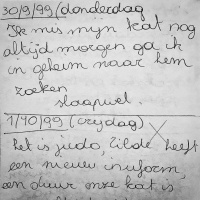 30/9/99 (donderdag
Ik mis mijn kat nog
altijd morgen ga ik
in geheim naar hem
zoeken
slaapwel.
1/10/99 (vrydag)
het is judo, heeft
een nieuw
een duur onze kat is